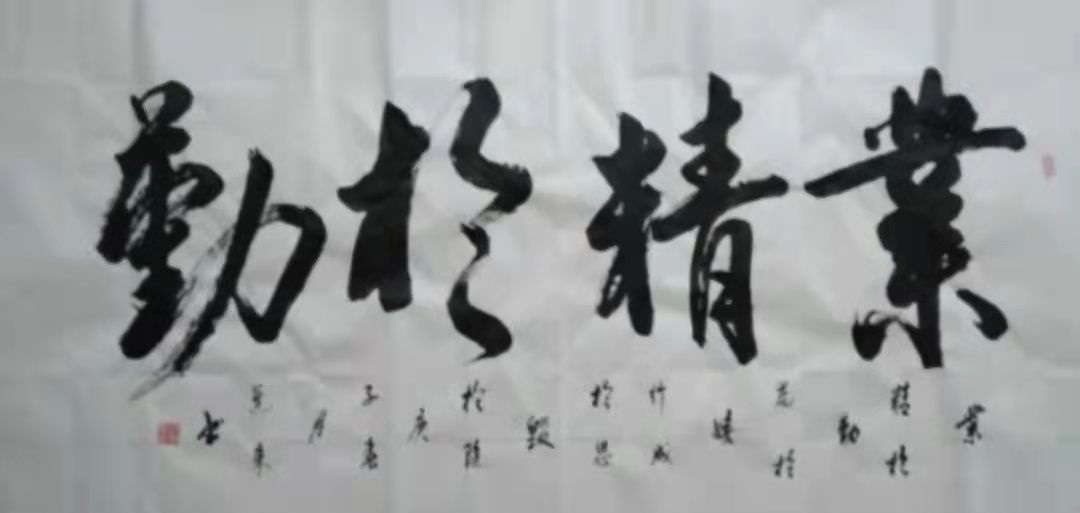 業精於勤
業精於勤荒於嬉行成於思毀於隨庚子春月书